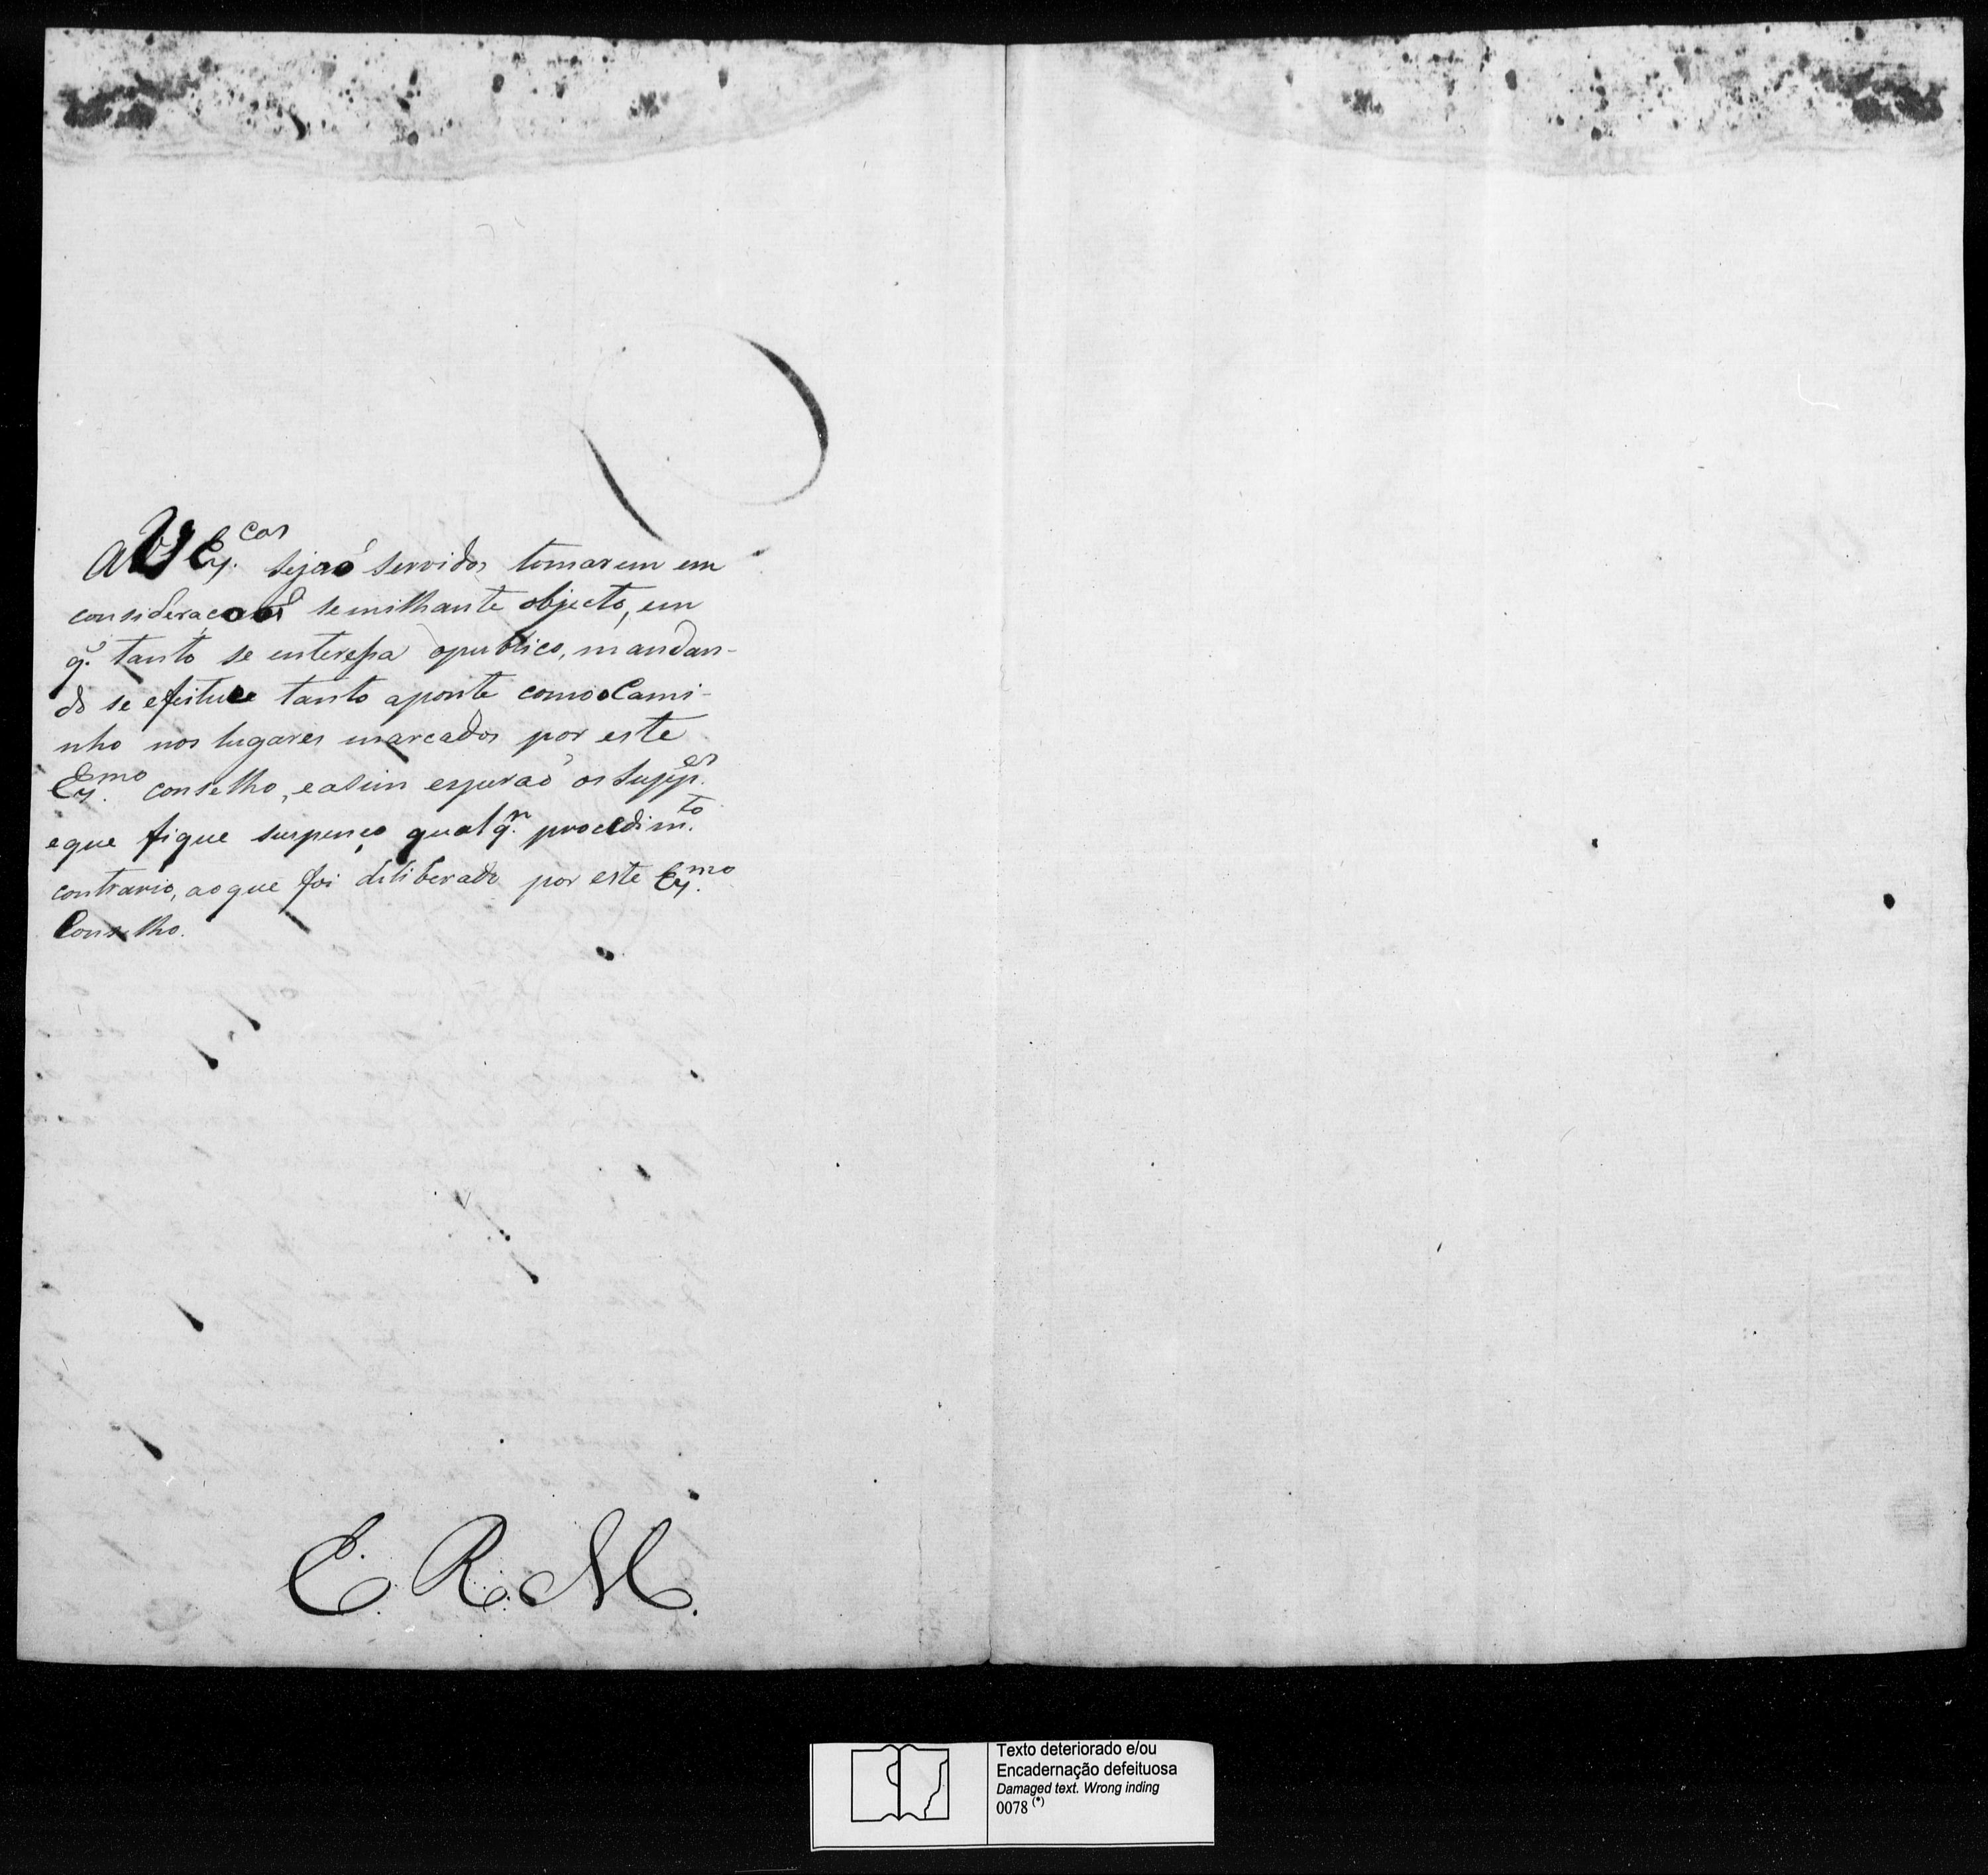 A V Ex.cas sejaõ servidos tomarem em
consideraçaõ semilhante objecto, em
q.' tanto se enteressa opublico, mandan-
do se efeitue tanto aponte como o Cami-
nho nos lugares marcados por este
Ex.mo conselho, e asim esperaõ os Supp.es
eque fique suspenço qualq.r procedim.to
contrario, aoque foi diliberado por este Ex.mo
Conselho.
E. R. M.
Texto deteriorado e/ou
Encadernação defeituosa
Damaged text. Wrong inding
0078 (*)